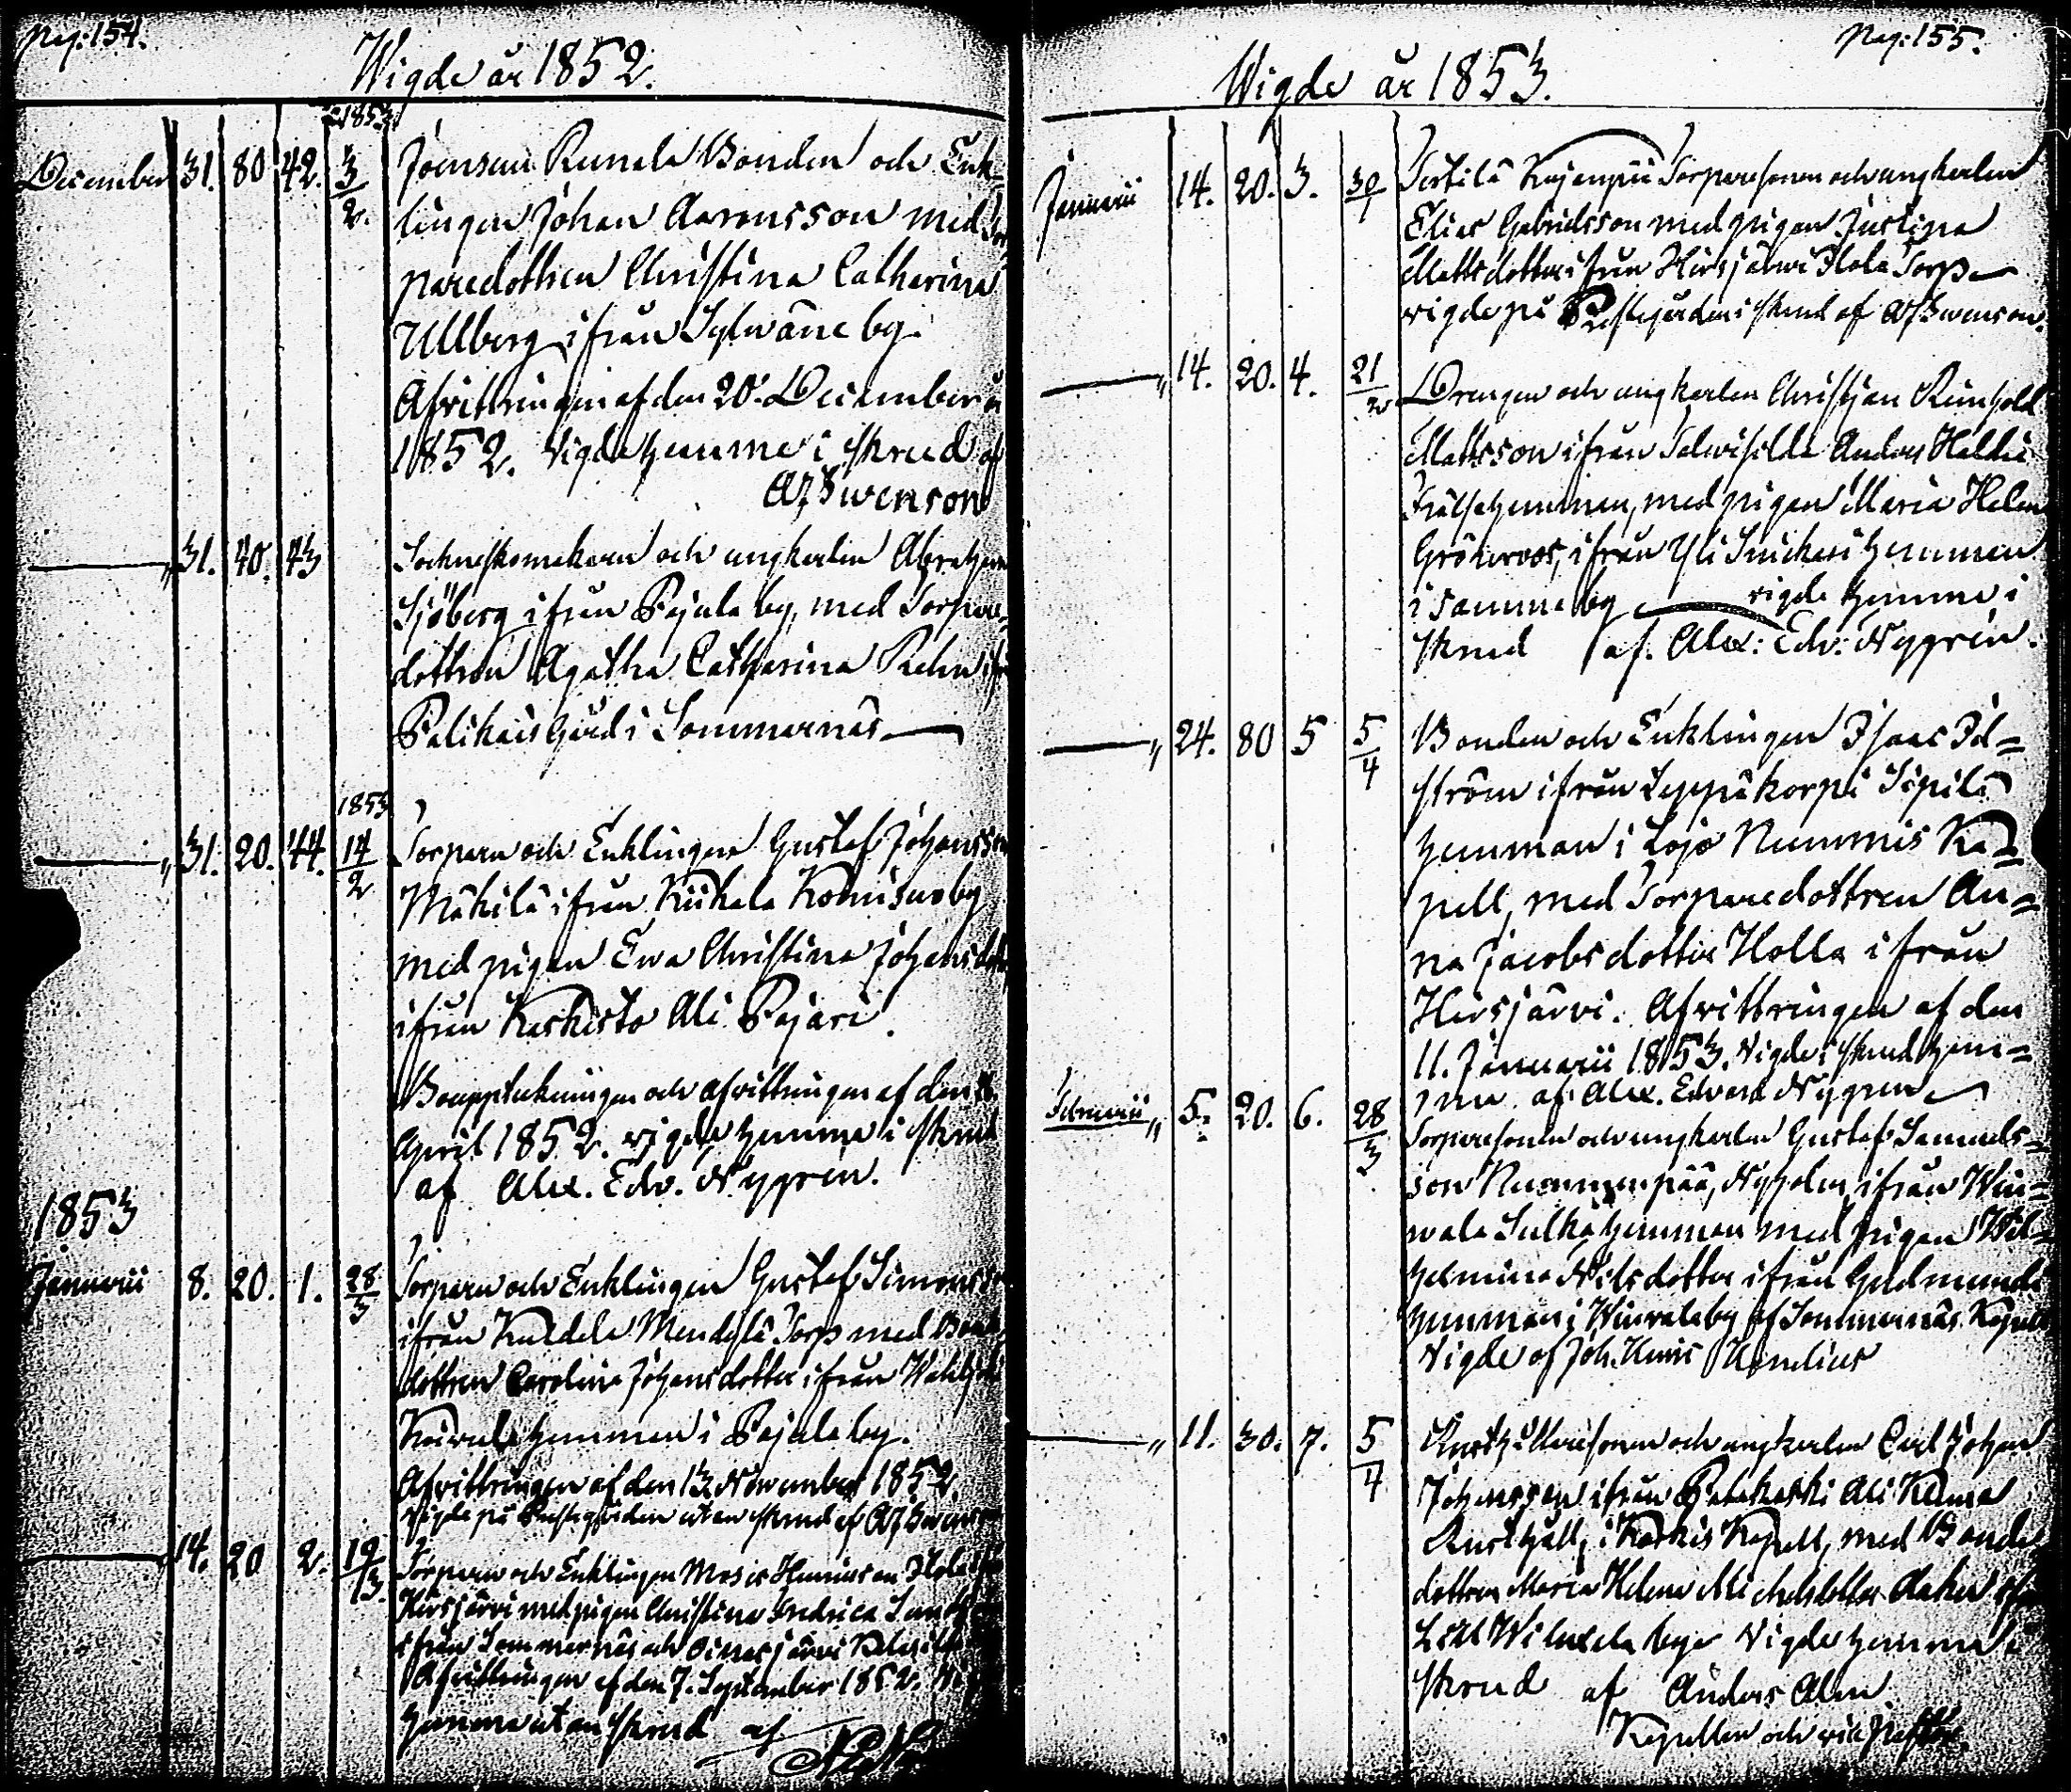 Pag: 154.
Wigde år 1852.
1853
December 31. 80 42. 3/2. Joensuu Runala Bonden och Enk-
lingen Johan Aaronsson med Tor
paredottren Christina Catharina
Ullberg ifrån Sylwäne by.
Afwittringen af den 20. December
1852. Vigde hemma i skrud af
AfSwenson
31. 40. 43 Socknskomakaren och ungkarlen Abraham
Sjöberg ifrån Pajula by, med Torpare
dottren Agatha Catharina Rehn ifr
Palikais Gård i Sommarnäs
1853
31. 20. 44. 14/2 Torparen och Enklingen Gustaf Johansson
Mäkilä ifrån Kiikala Komisuo by
med pigan Ewa Christina Johansdotter
ifrån Kaskisto Ali Pajari.
Bouppteckningen och afwittringen af den
April 1852. vigde hemma i skrud
af Alex. Edv. Nygrén.
1853
Januarii 8. 20. 1. 28/3 Torparen och Enklingen Gustaf Simonsson
ifrån Kurdela Mendylä Torp med Bonde
dottren Carolina Johansdotter ifrån
hemman i Pajula by.
Afwittringen af den 13 November 1852.
Vigde på Prestegården utan skrud af AfSwenson
14. 20 2. 19/3. Torparen och Enklingen Moses Henricsson Flola ifrån
Hirsjärvi med pigan Christina Fredrica
ifrån Sommarnäs och Oinasjärvi
Afwittringen af den 7. September 1852.
hemma utan skrud af
Pag: 155.
Wigde år 1853.
Januarii 14. 20. 3. 30/1 Torparesonen och ungkarlen
Elias Gabrielsson med pigan Justina
Mattsdotter ifrån Hirsjärvi Flola Torp
vigde på Prestegården i skrud af AfSwenson.
14. 20. 4. 21/2 Drengen och ungkarlen Christjan Reinhold
Mattsson ifrån Anders
Frälsehemman, med pigan Maria Helena
Grönroos, ifrån Yli hemman
i samma by vigde hemma i
skrud af. Alex: Edv: Nygrén.
24. 80 5 5/4 Bonden och Enklingen Isaac Id=
ström ifrån Leppäkorpi Sipilä
hemman i Lojo Nummis Ka=
pell, med Torparedottren An=
na Jacobsdotter Holla ifrån
Hirsjärvi. Afwittringen af den
11. Januarii 1853. Vigde i skrud hem=
ma af Alex. Edvard Nygren
Februarii 5. 20. 6. 28/3 Torparesonen och ungkarlen Gustaf Samuels=
son Nummenpää, Nyholm, ifrån Wiu=
wala Sulka hemman med pigan Wil=
helmina Nilsdotter ifrån Gudmunds
hemman i Wiuvala by af Sommarnäs Kapell
Vigde af Joh. Henric Homelius
11. 30. 7. 5/4 Rusthållaresonen och ungkarlen Carl Johan
Johansson ifrån Patakoski Ali
Rusthåll, i Karkis Kapell, med Bonde
dottren Maria Helena Michelsdotter
Lill by Vigde hemma i
skrud af Anders Alm.
Kapellan och vice Pastor.